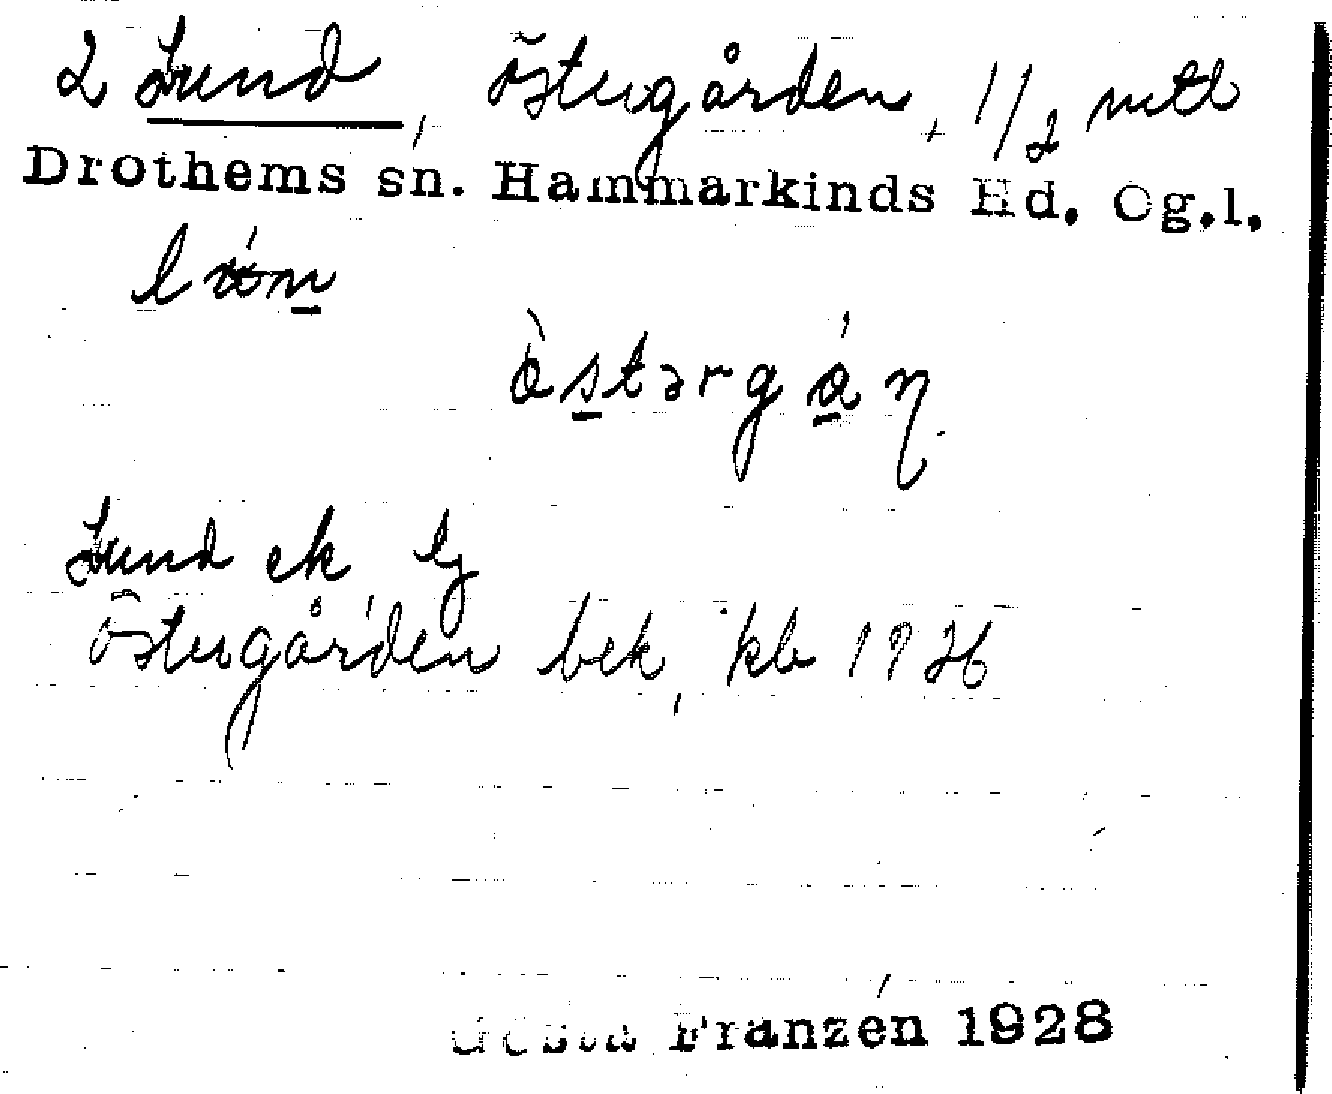 2 Lund, Östergården, 1/2 mtl
Drothems sn. Hammarkinds Hd. Ög.l.
östərgán
Lund ek, Ej
Östergården bek, kb 1926
Gösta Franzén 1928